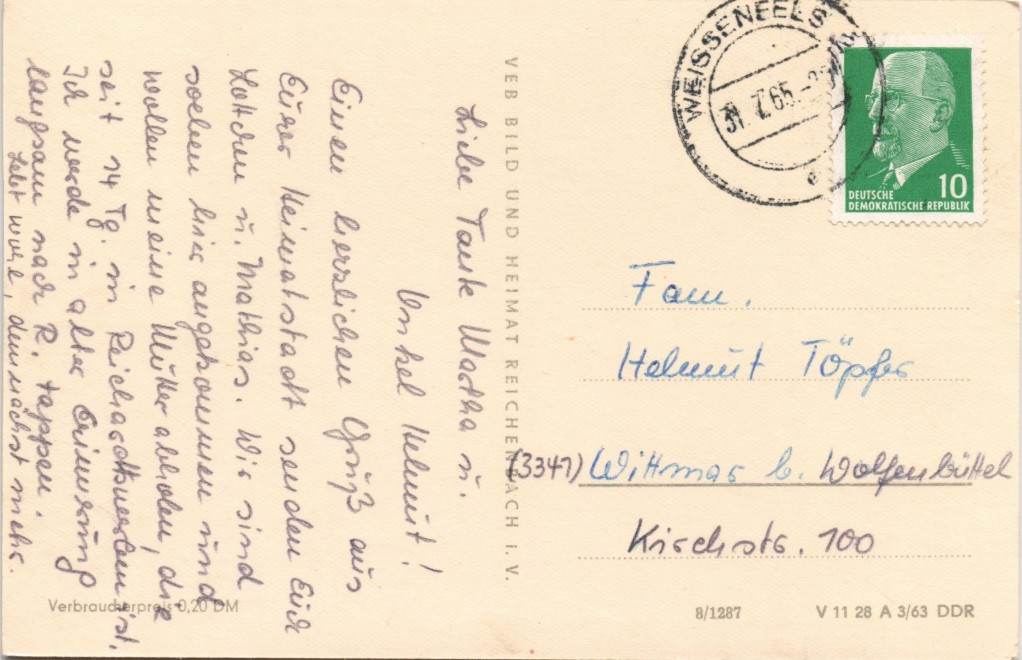 Liebe Tante Martha u.
Onkel Helmut!
Einen herzlichen Gruß aus
Eurer Heimatstadt senden Euch
u. Mathias. Wir sind
soeben hier angekommen und
wollen meine Mutter abholen, die
seit 14 Tg. in Reichardtswerben ist.
Ich werde in alter Erinnerung
langsam nach R. tappen.
Lebt wohl, demnächst mehr.
Verbraucherpreis 0,20 DM
VEB BILD UND HEIMAT REICHENBACH I. V.
WEISSENFELS
31. 7. 65
DEUTSCHE
DEMOKRATISCHE REPUBLIK
10
Fam.
Helmut Töpfer
(3341) Wittmar b. Wolfenbüttel
Kirchstr. 100
8/1287
V 11 28 A 3/63 DDR